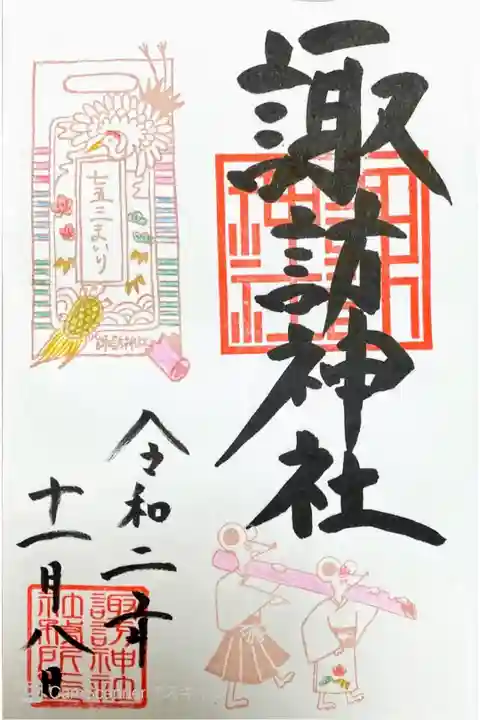 諏訪神社
七五三まいり
諏訪神社
令和二年
十一月八日
諏訪神社
社務所
CamScanner